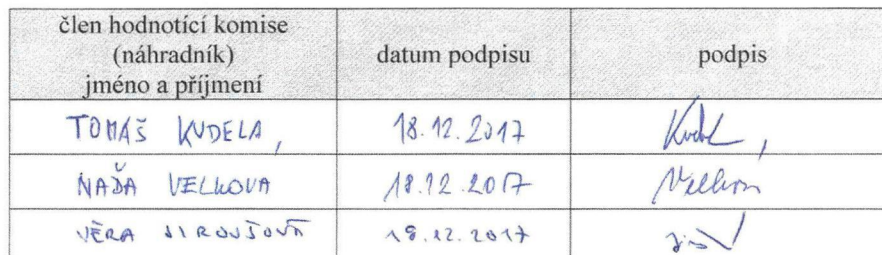 člen hodnotící komise
(náhradník)
jméno a příjmení
datum podpisu
podpis
TOMÁŠ KUDELA,
18.12.2017
NAĎA VELKOVA
18.12.2017
VĚRA JIROUŠOVÁ
18.12.2017